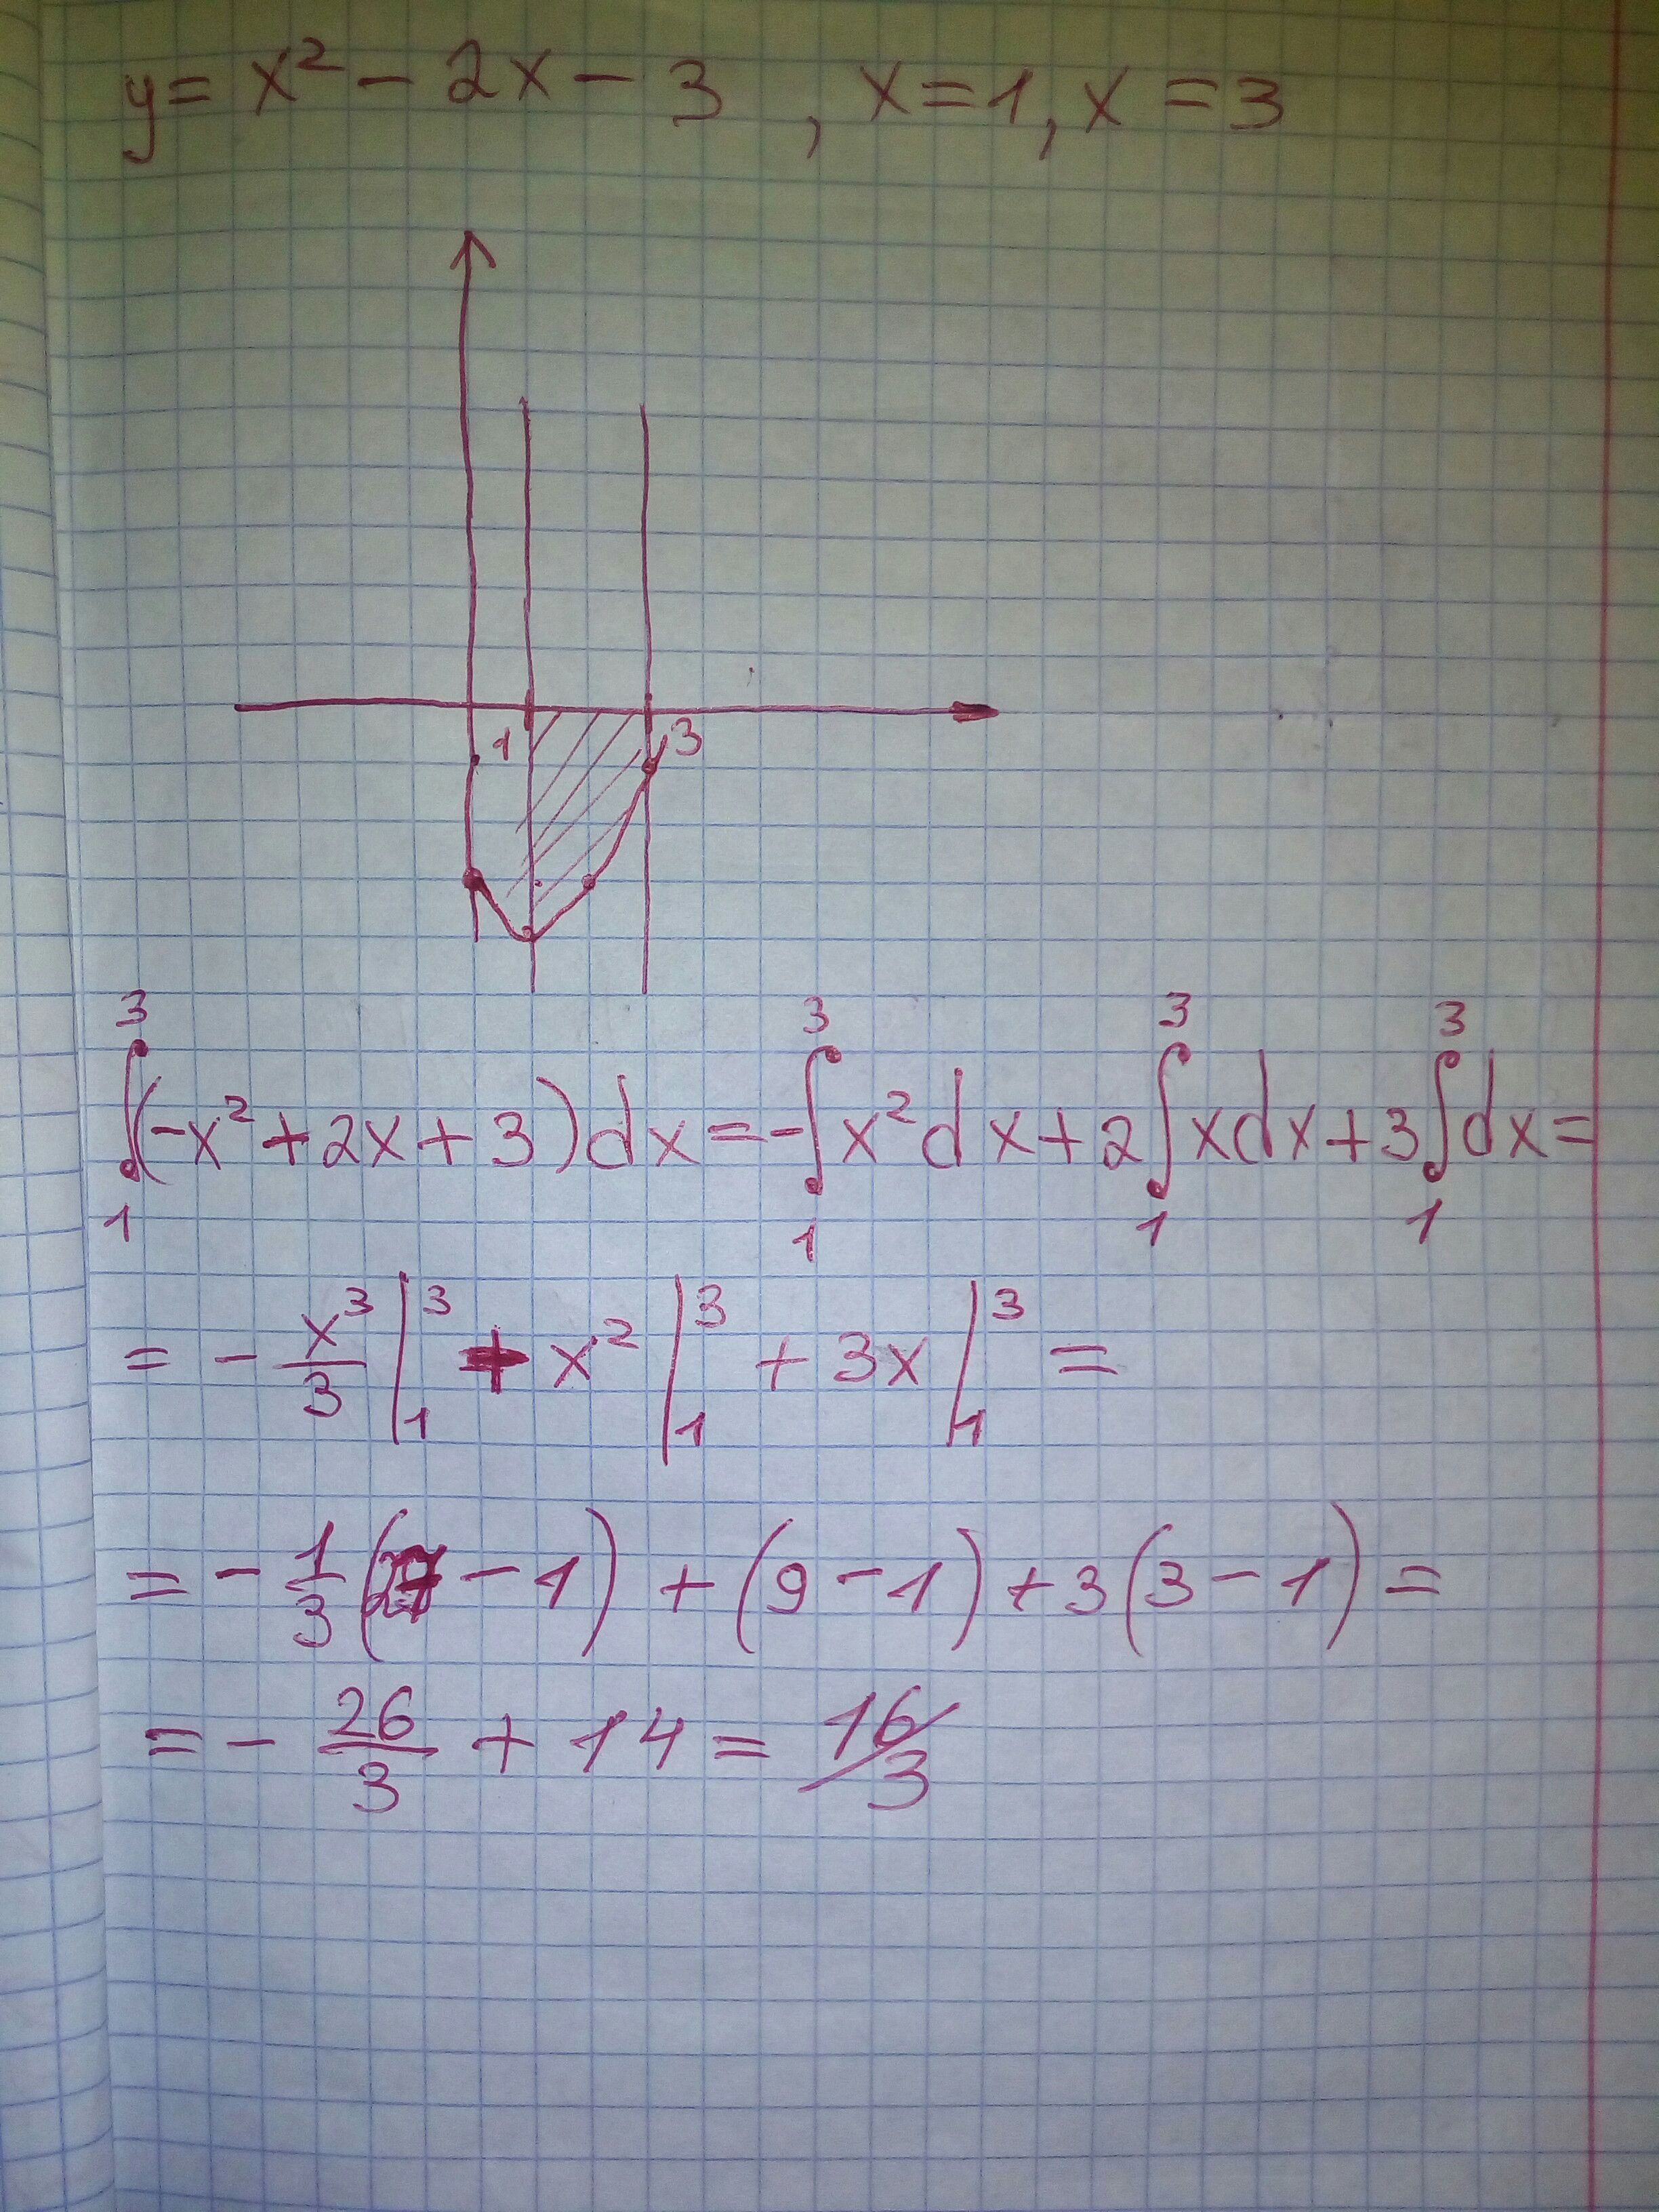 y = x² - 2x - 3 , x = 1, x = 3
1 3
∫₁³(-x² + 2x + 3)dx = -∫₁³x²dx + 2∫₁³xdx + 3∫₁³dx =
= - x³/3 |₁³ + x² |₁³ + 3x |₁³ =
= - 1/3 (27 - 1) + (9 - 1) + 3(3 - 1) =
= - 26/3 + 14 = 16/3